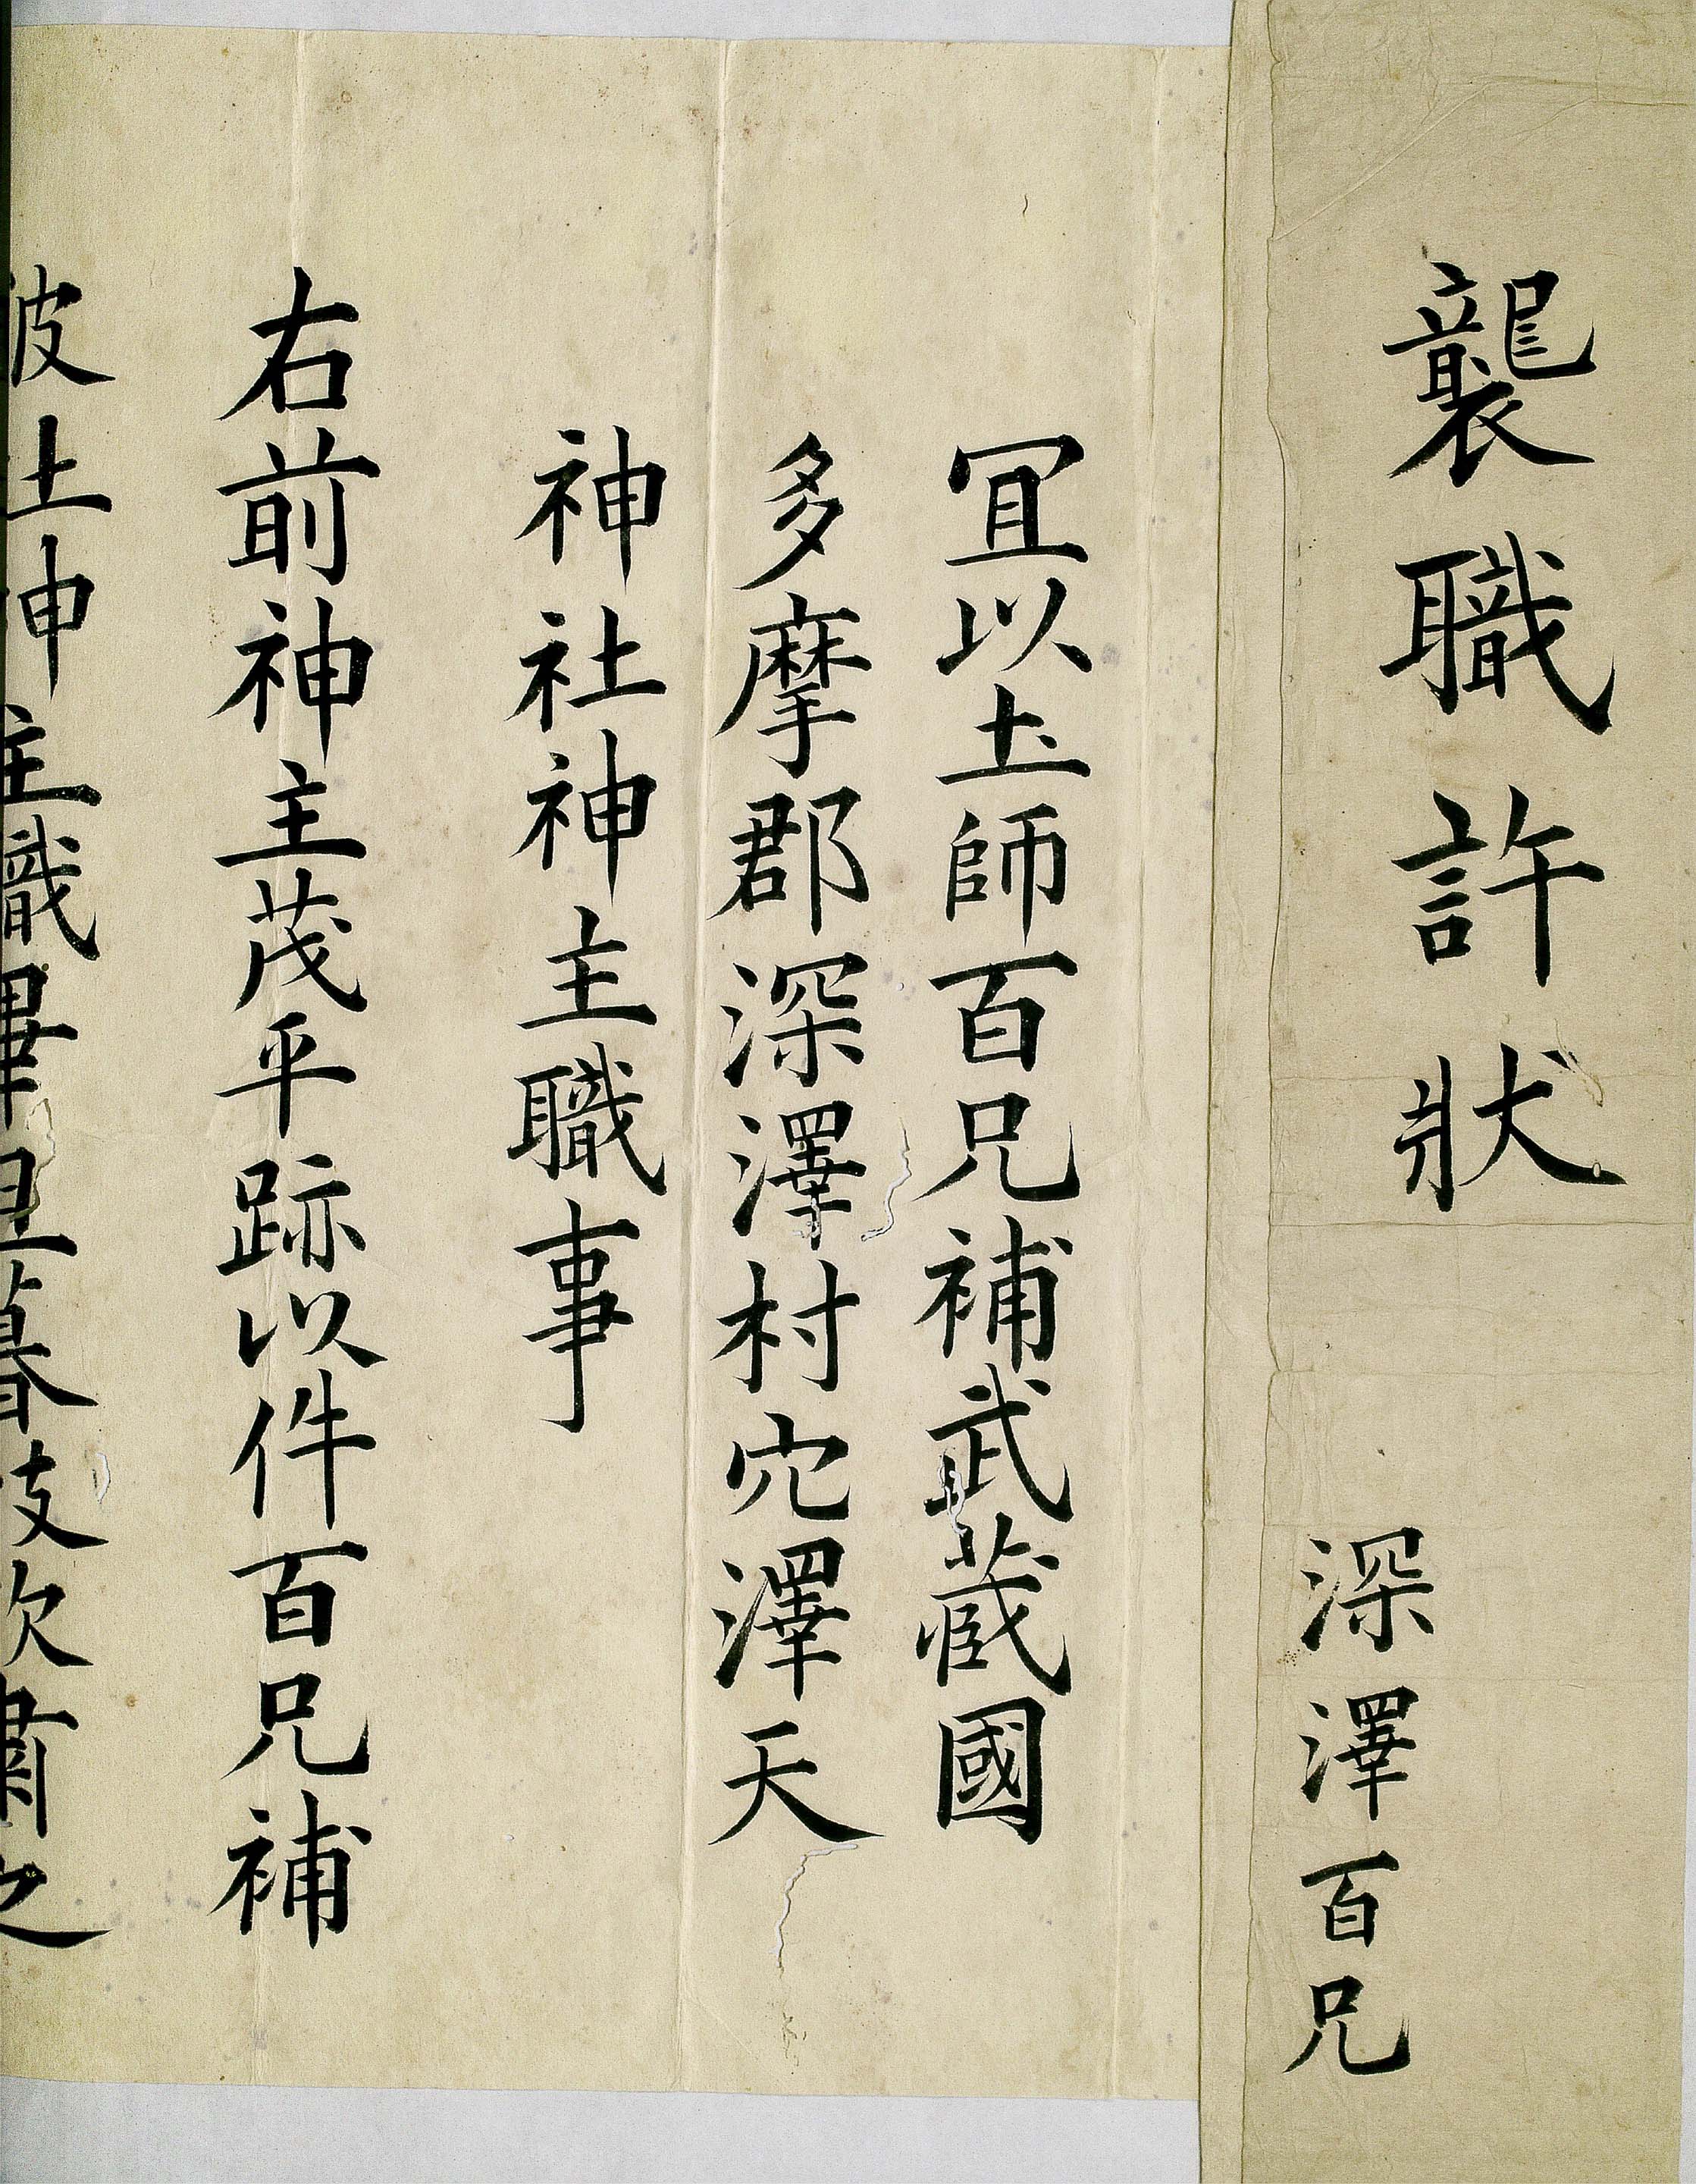 襲職許狀
深澤百兄
冝以土師百兄補武藏國
多摩郡深澤村穴澤天
神社神主職事
右前神主茂平跡以件百兄補
彼土神主職畢旦暮